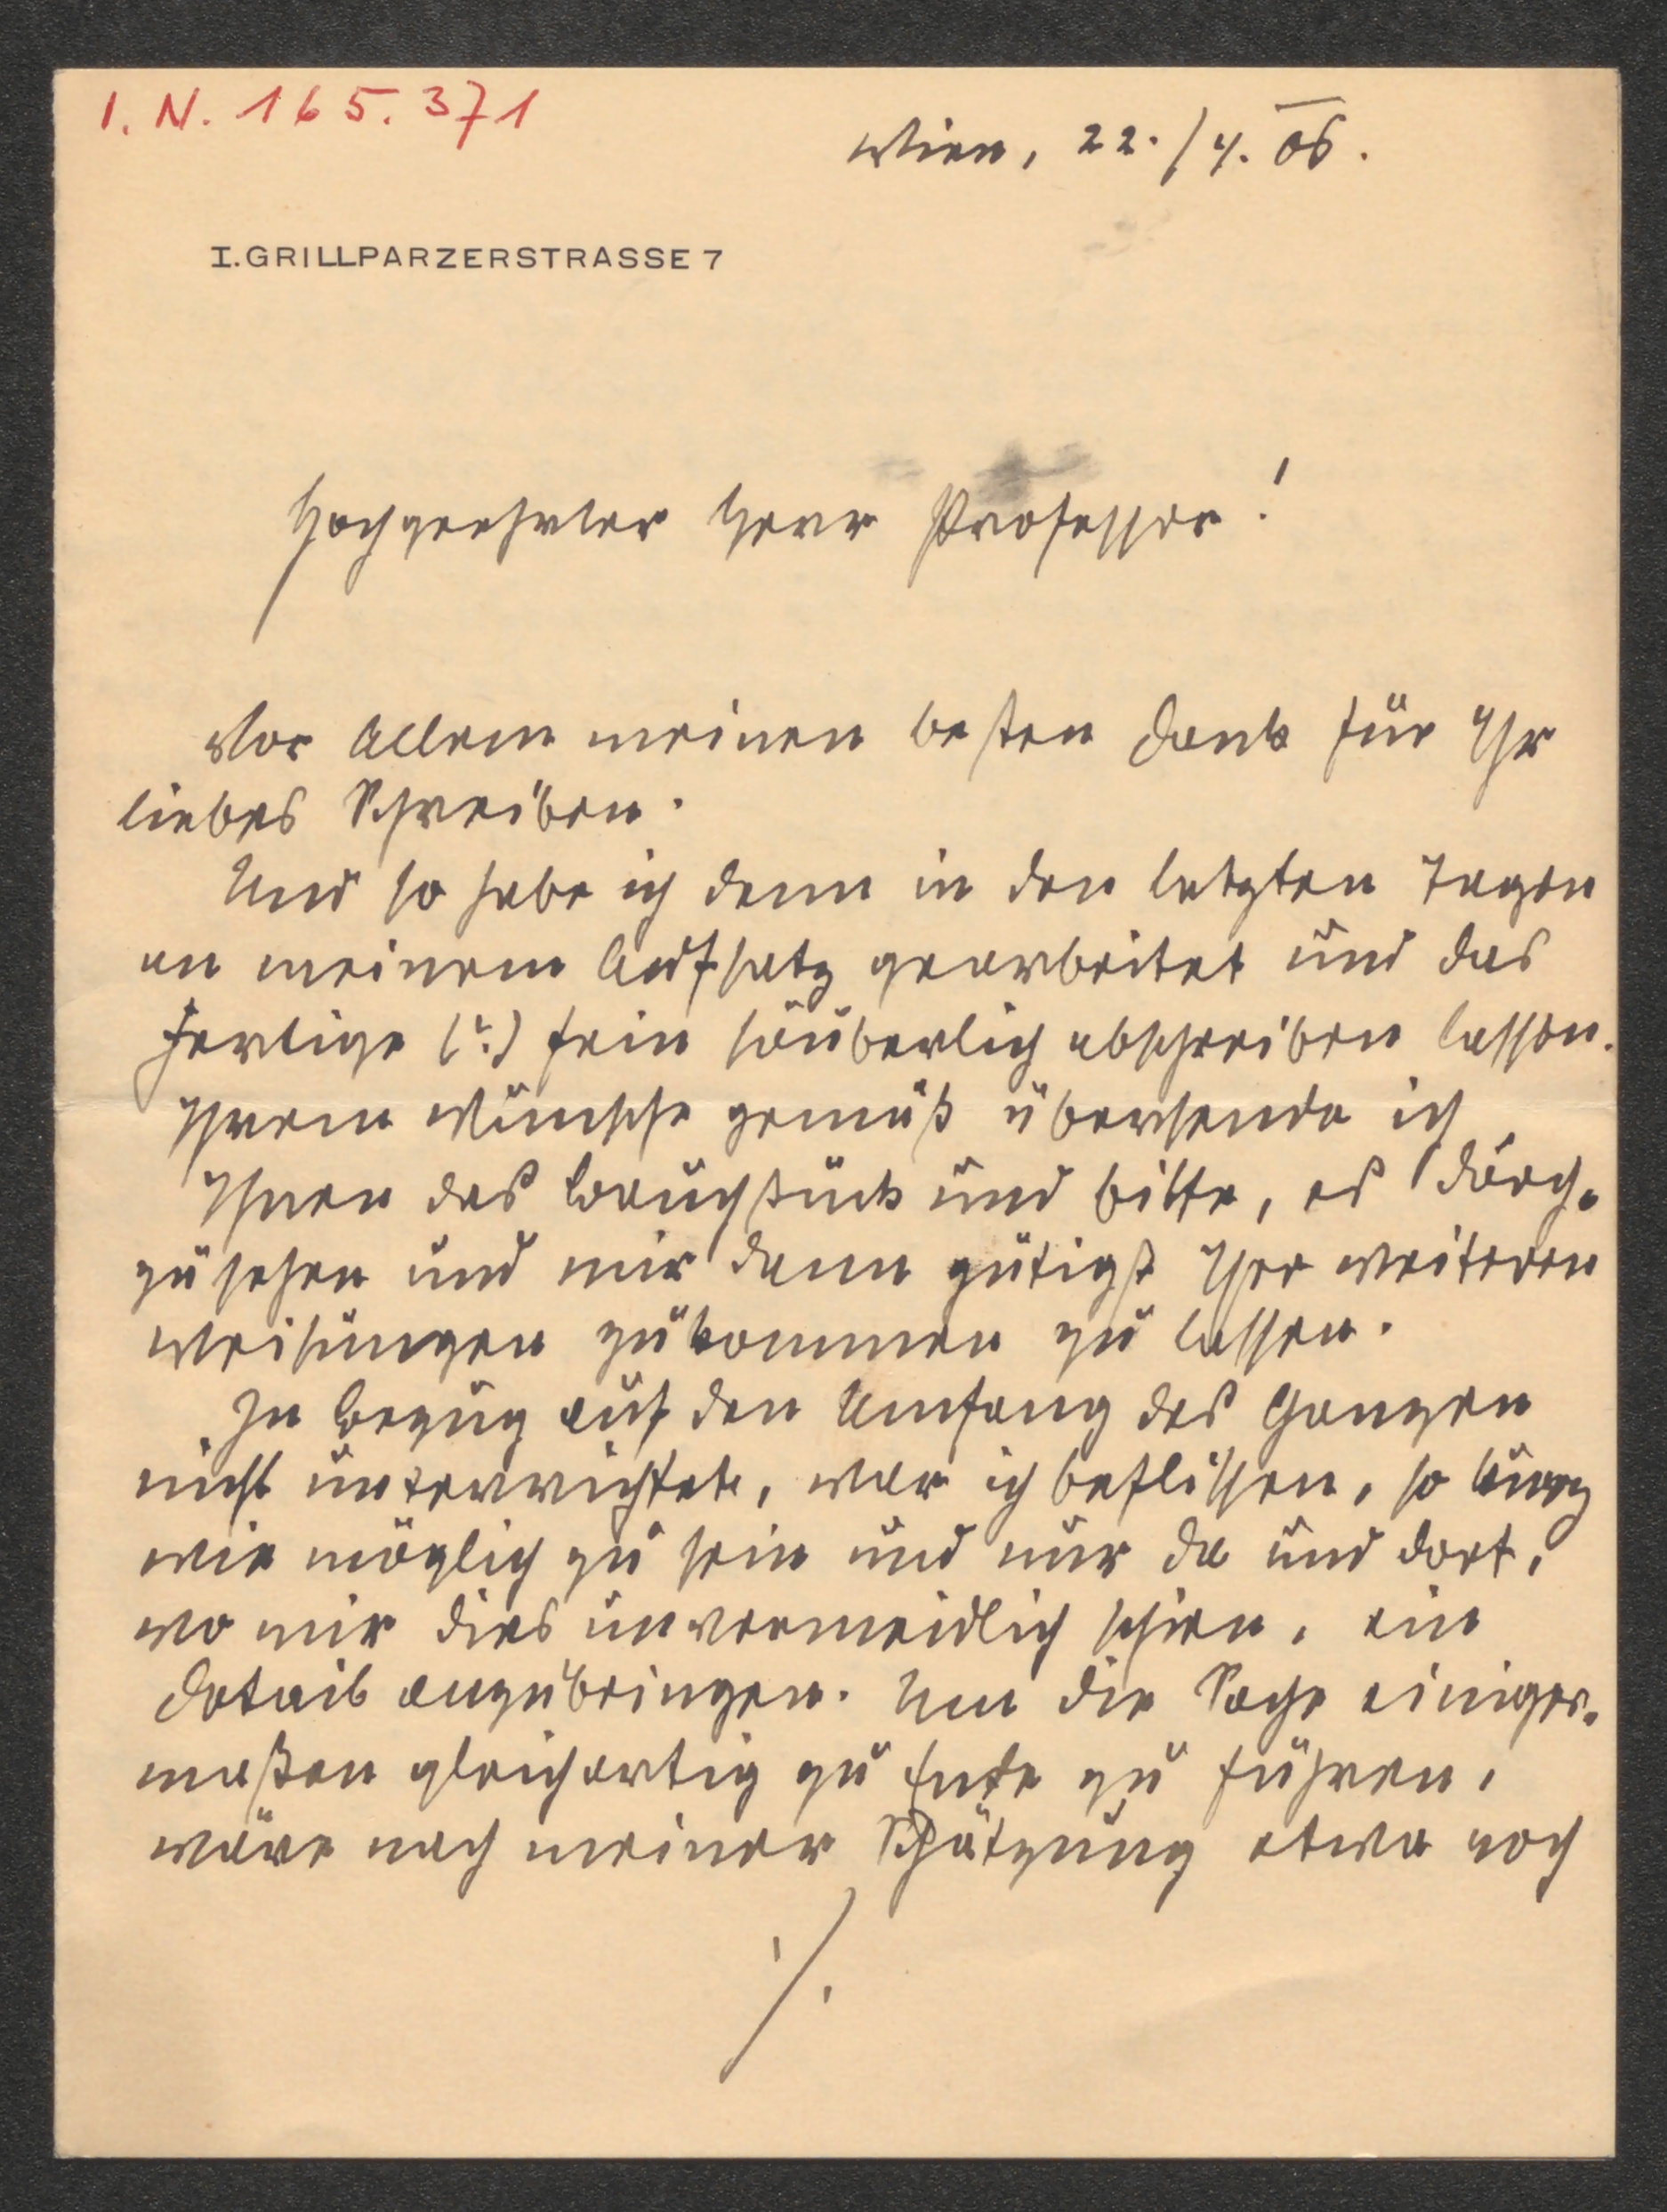 I. N. 165.371
Wien, 22./4. 06.
I. GRILLPARZERSTRASSE 7
Hochgeehrter Herr Professor!
Vor Allem meinen besten Dank für Ihr
liebes Schreiben.
Und so habe ich denn in den letzten Tagen
an meinem Aufsatz gearbeitet und das
Fertige (?) fein säuberlich abschreiben lassen.
Ihrem Wunsche gemäß übersende ich
Ihnen das Bruchstück und bitte, es durch-
zusehen und mir dann gütigst Ihre weiteren
Weisungen zukommen zu lassen.
In Bezug auf den Umfang des Ganzen
nicht unterrichtet, war ich beflissen, so kurz
wie möglich zu sein und nur da und dort,
wo mir dies unvermeidlich schien, ein
Detail anzubringen. Um die Sache einiger-
maßen gleichartig zu Ende zu führen,
wäre nach meiner Schätzung etwa noch
./.